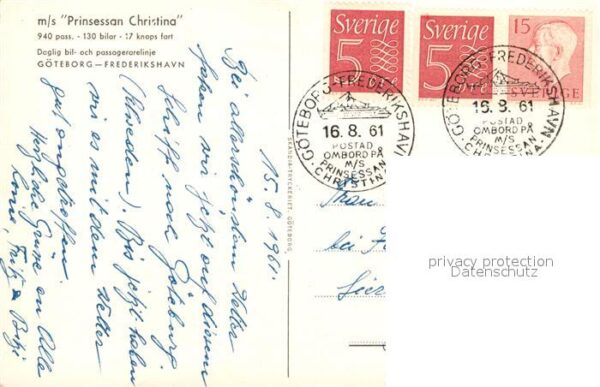 m/s "Prinsessan Christina"
940 pass. - 130 bilar - 17 knops fart
Daglig bil- och passagerarelinje
GÖTEBORG—FREDERIKSHAVN
15. 8. 1961.
Bei allerschönstem Wetter
fahren wir jetzt auf diesem
Schiff nach Göteborg
(Schweden). Bis jetzt haben
wir es mit dem Wetter
gut angetroffen.
Herzliche Grüsse an Alle
Fritz &
SKANDIA-TRYCKERIET, GÖTEBORG.
Sverige
5 öre
Sverige
5 öre
15
SVERIGE
GÖTEBORG-FREDERIKSHAVN
16. 8. 61
POSTAD
OMBORD PÅ
M/S
PRINSESSAN
CHRISTINA
GÖTEBORG-FREDERIKSHAVN
16. 8. 61
POSTAD
OMBORD PÅ
M/S
PRINSESSAN
CHRISTINA
bei
privacy protection
Datenschutz